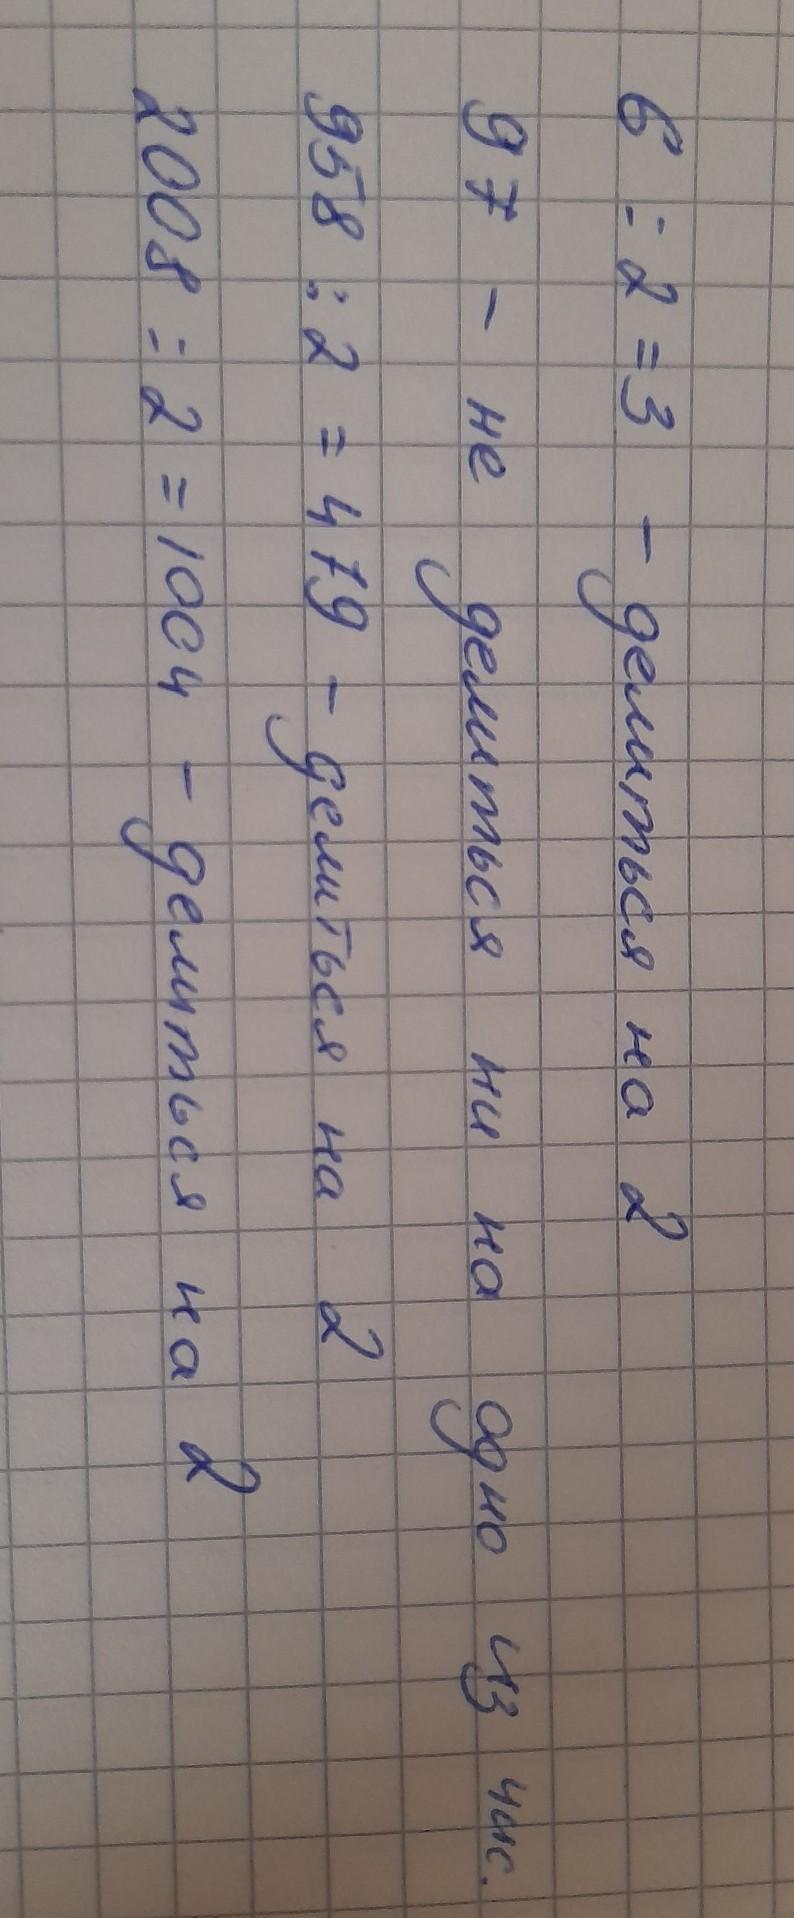 6 : 2 = 3 - делиться на 2
97 - не делиться ни на одно из чис.
958 : 2 = 479 - делиться на 2
2008 : 2 = 1004 - делиться на 2